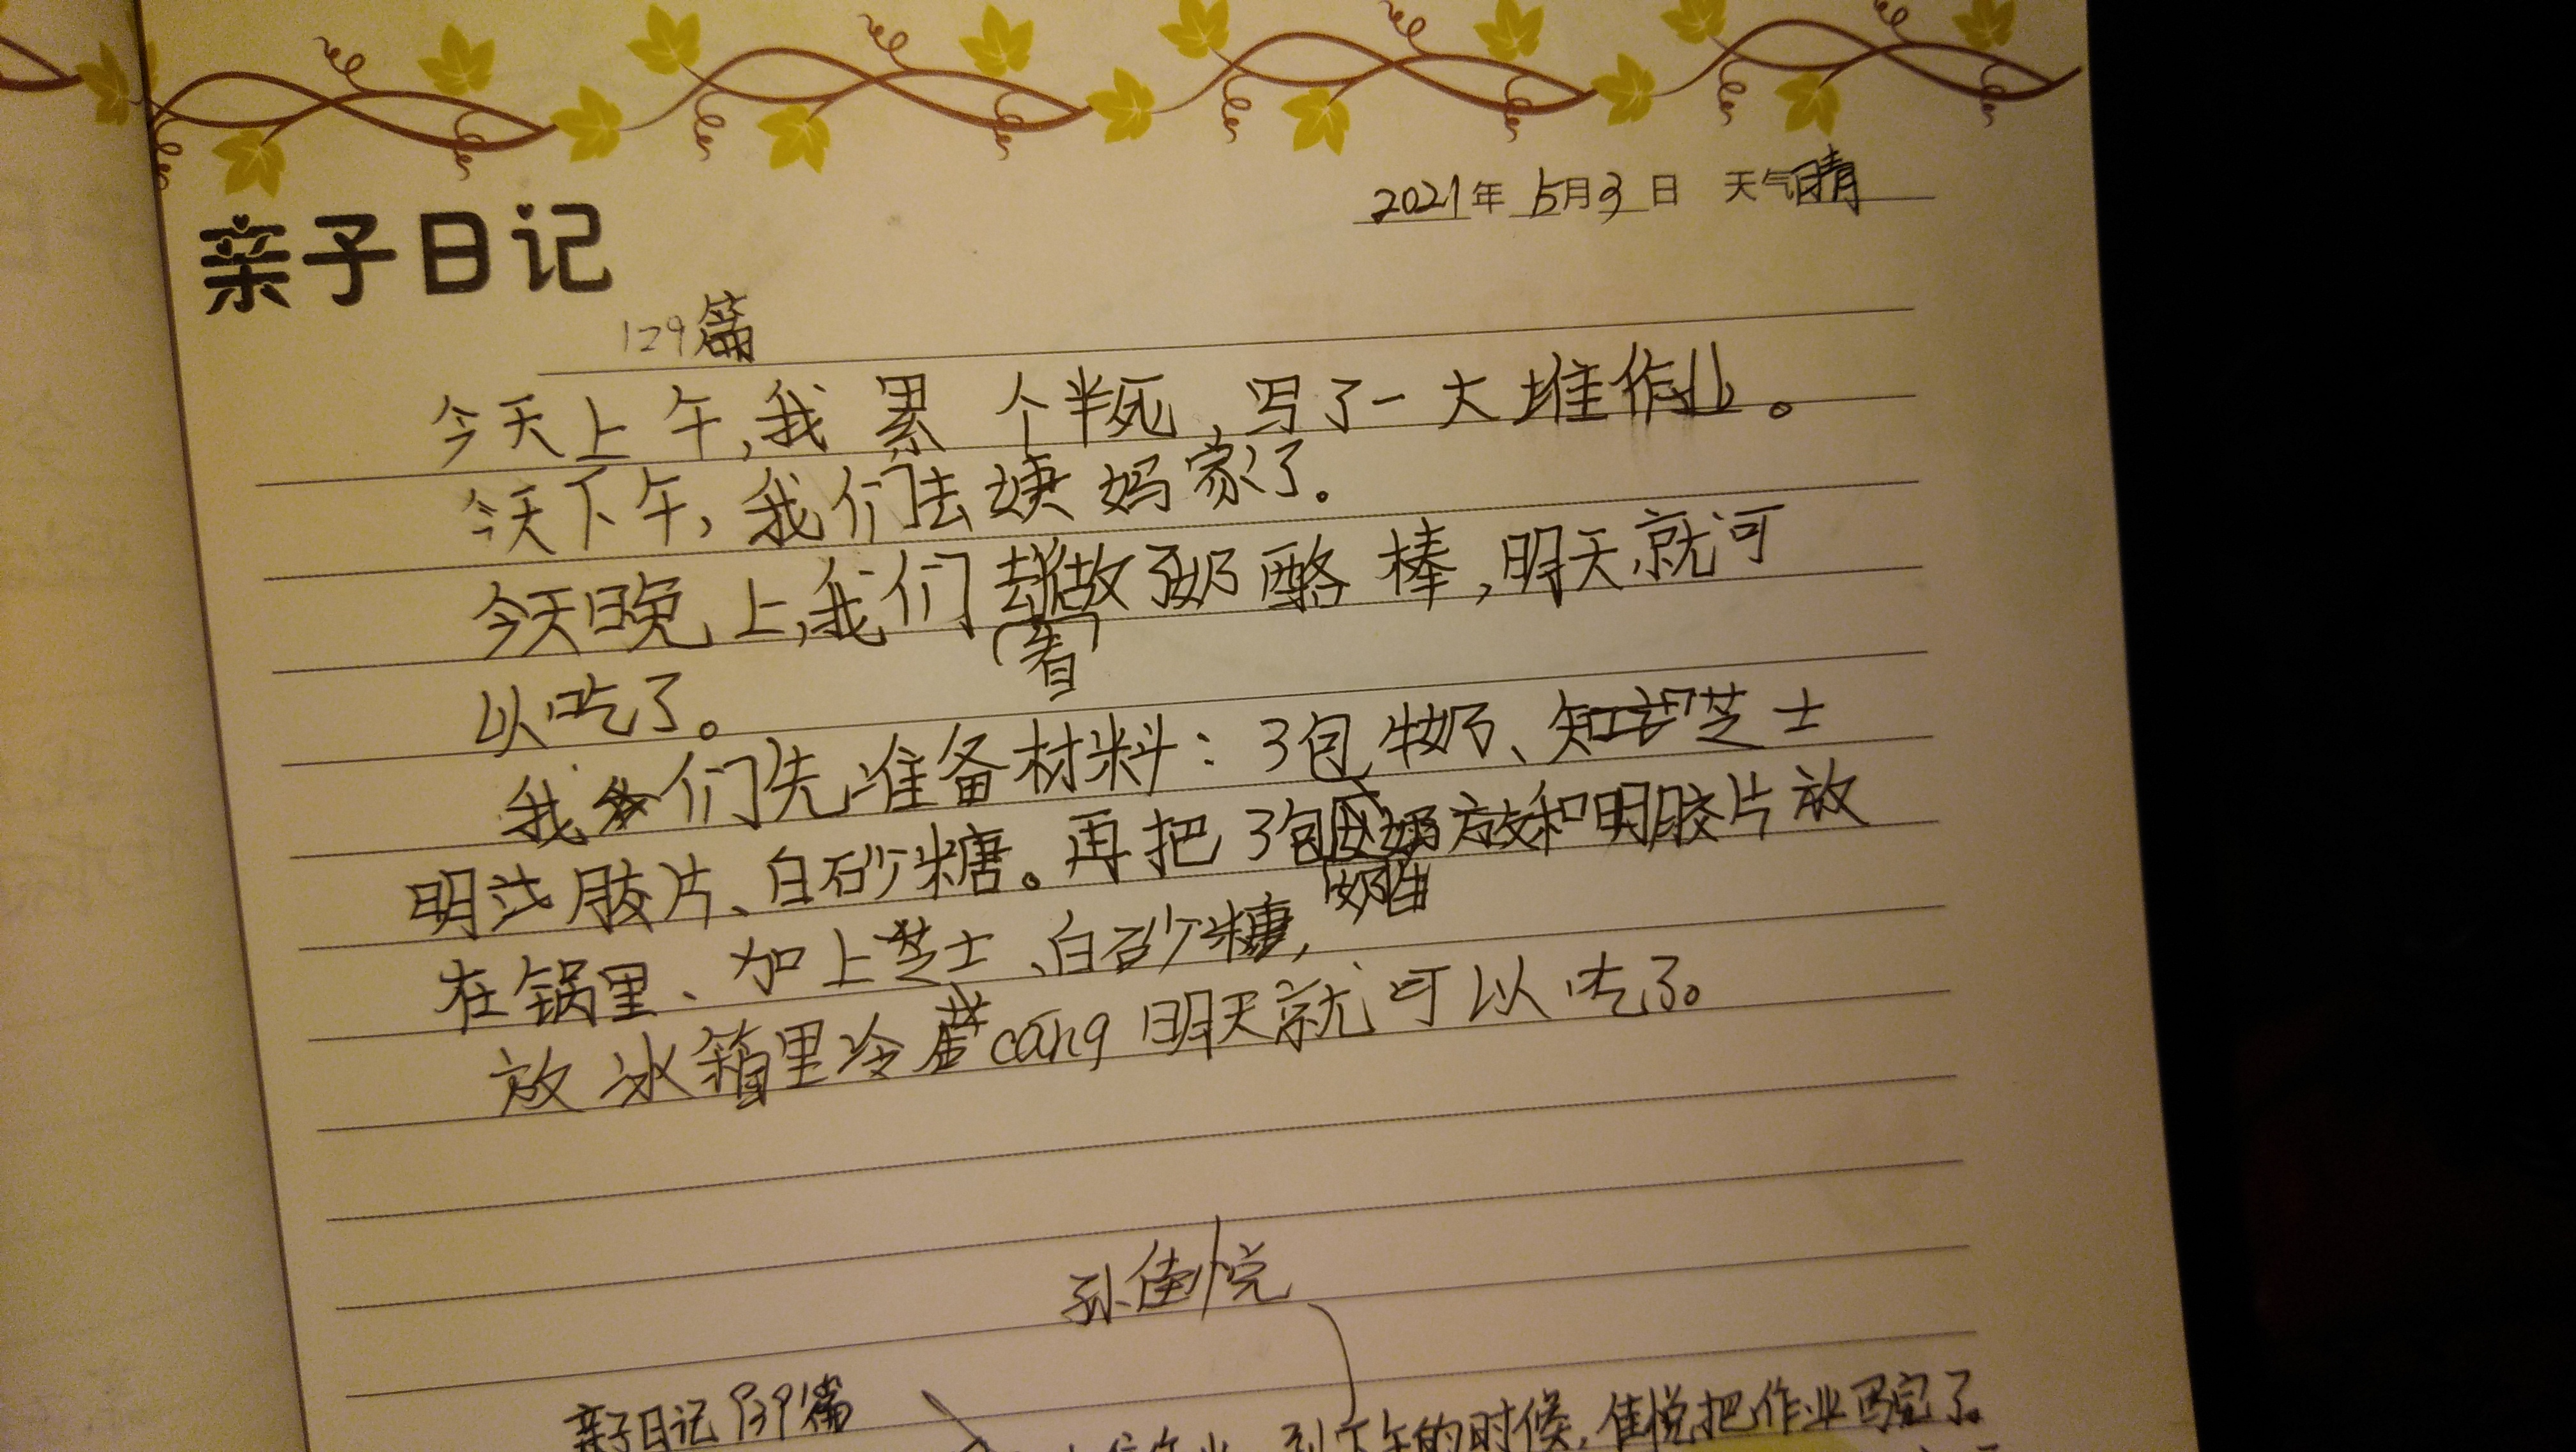 2021年 5月3日 天气晴
亲子日记
129篇
今天上午,我累个半死,写了一大堆作业。
今天下午,我们去姨妈家了.
今天晚上,我们做奶酪棒,明天就可
(看)
以吃了。
我们先准备材料:3包牛奶、芝士
明胶片、白砂糖。再把3包放和明胶片放
在锅里、加上芝士、白砂糖,
放冰箱里冷藏cáng明天就可以吃了。
孙佳悦
亲子日记 939篇
到下午的时候,佳悦把作业写完了。